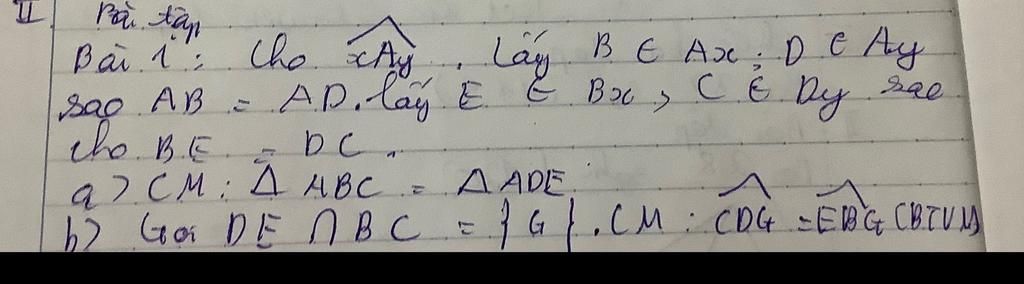 II. Bài tập
Bài 1: Cho xAy. Lấy B ∈ Ax; D ∈ Ay
sao AB = AD. Lấy E ∈ Bx, C ∈ Dy sao
cho BE = DC.
a) CM: Δ ABC = Δ ADE
b) Gọi DE ∩ BC = {G}. CM: CDG = EBG (BTVN)